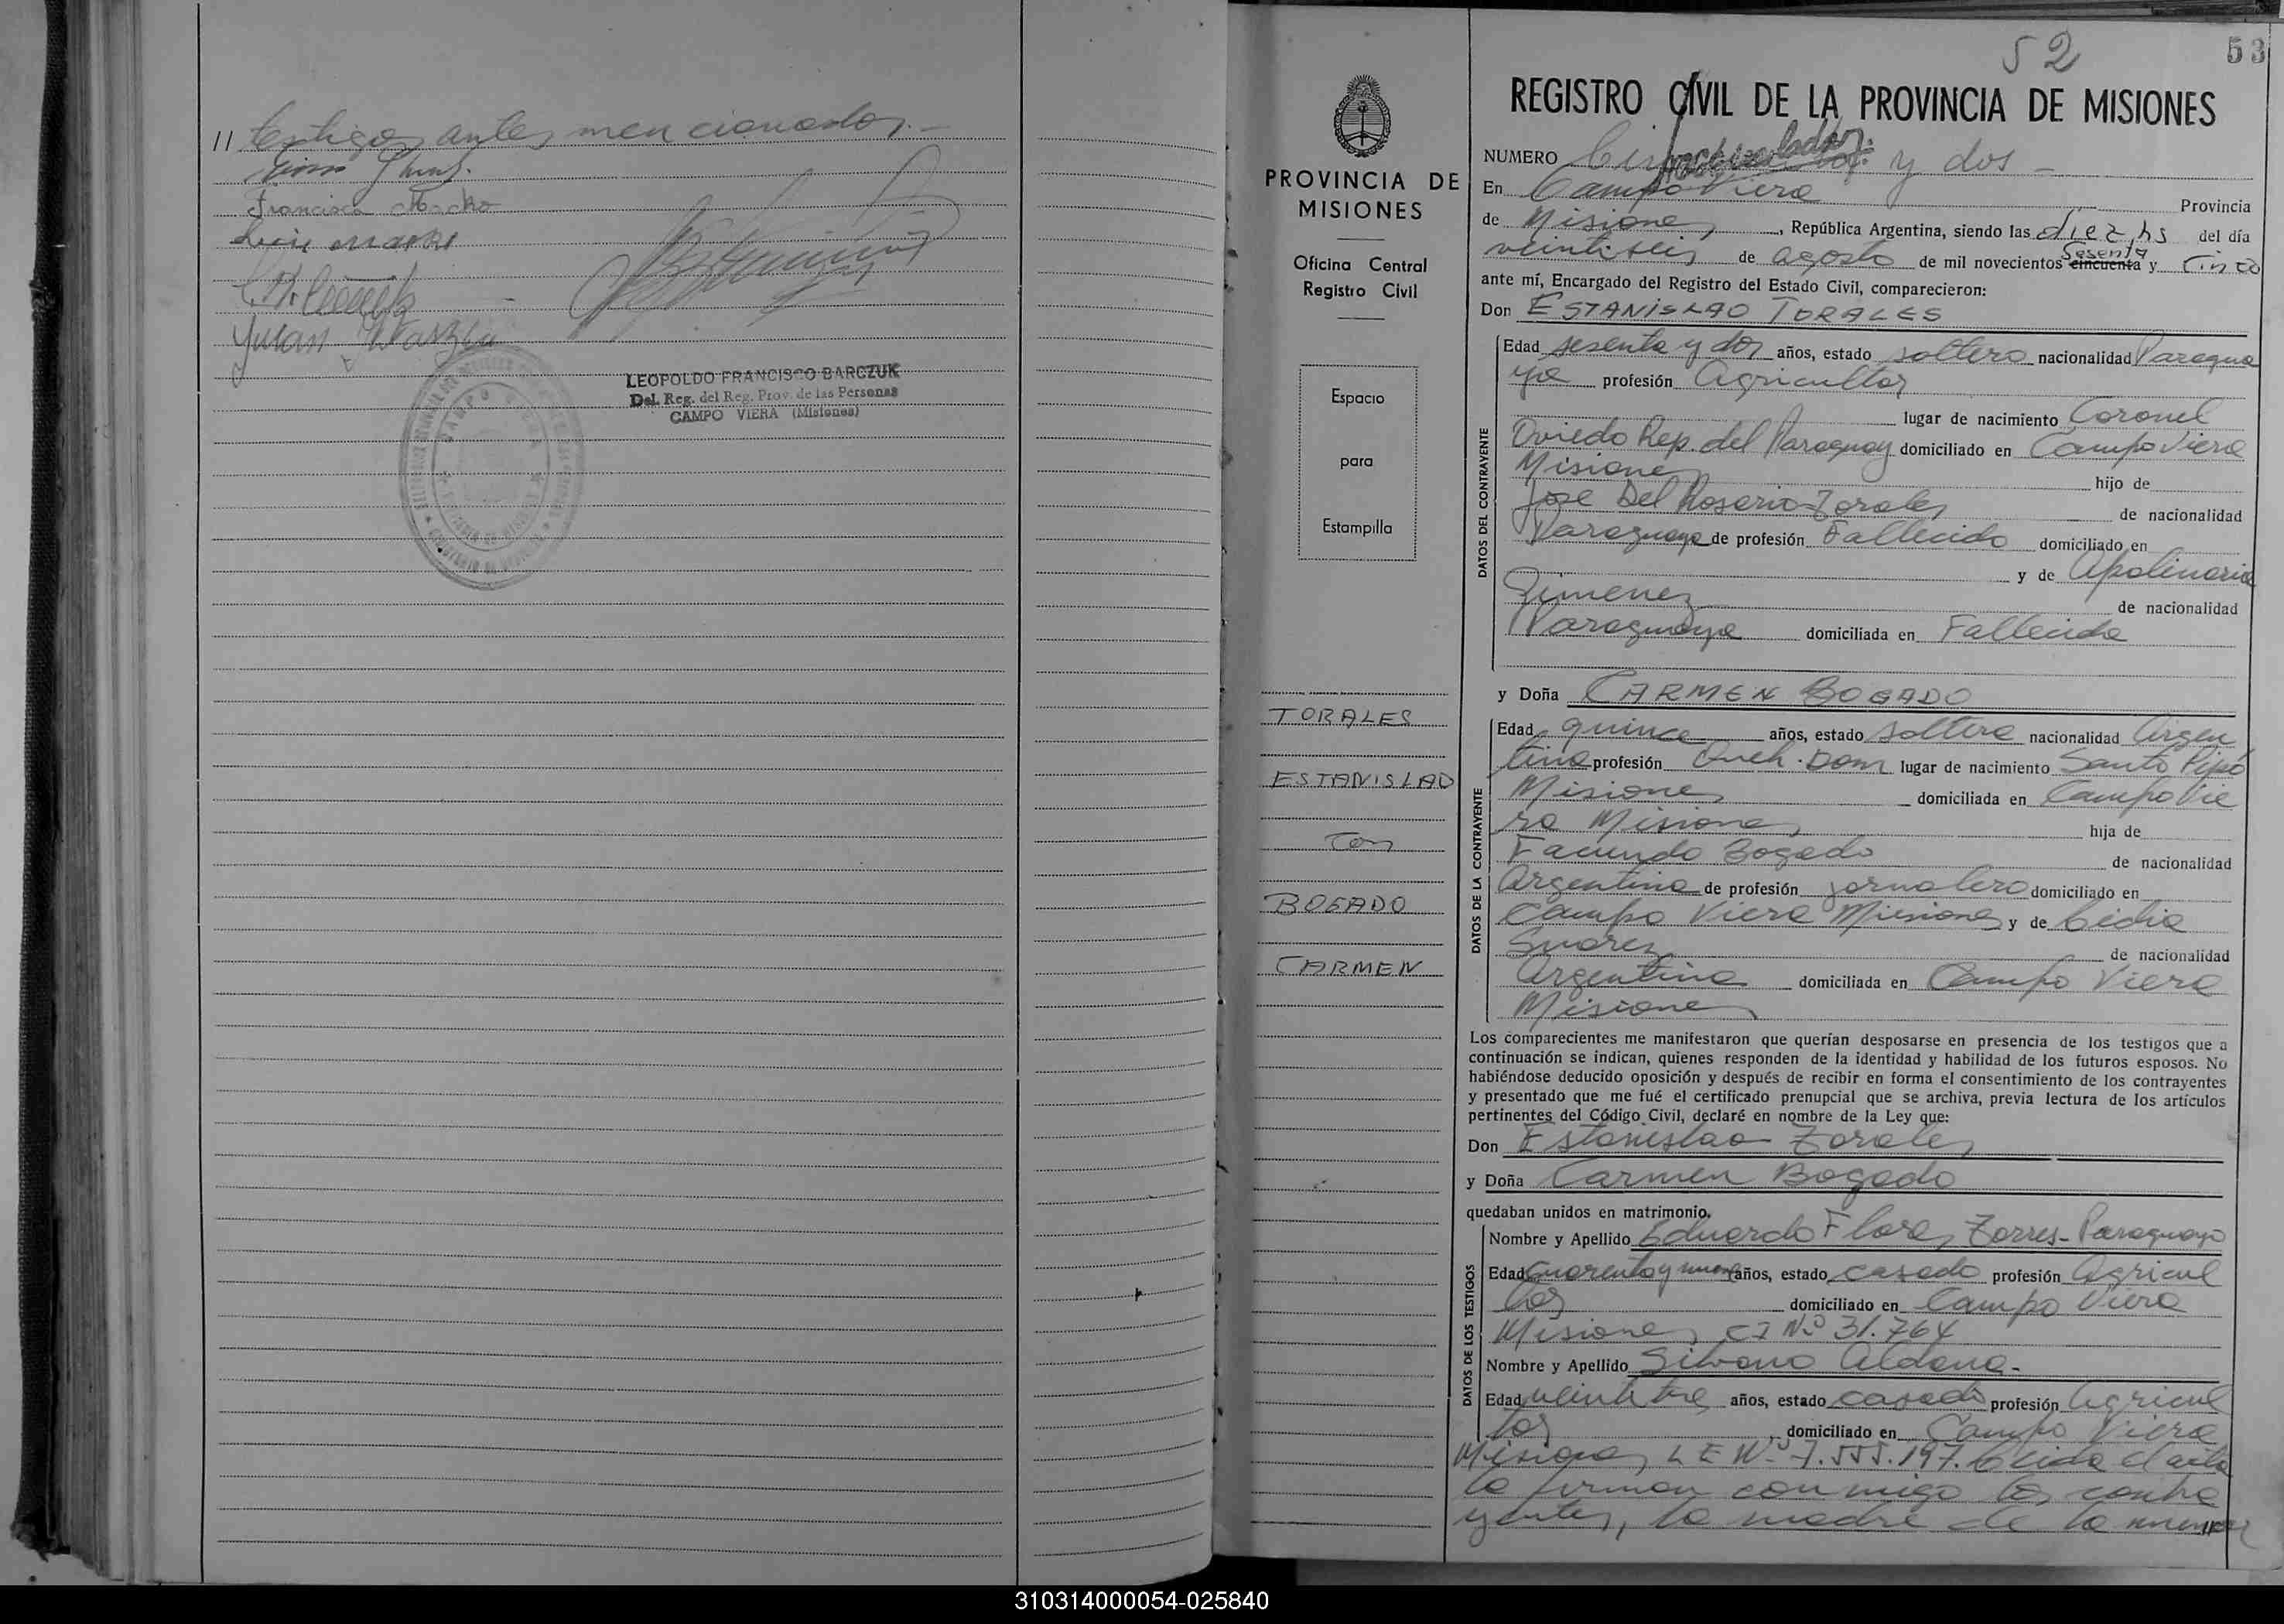 // testigos antes mencionados.-
Francisca Macko
Juan
LEOPOLDO FRANCISCO BARCZUK
Del. Reg. del Reg. Prov. de las Personas
CAMPO VIERA (Misiones)
52
53
PROVINCIA DE
MISIONES
Oficina Central
Registro Civil
Espacio
para
Estampilla
TORALES
ESTANISLAO
con
BOGADO
CARMEN
REGISTRO CIVIL DE LA PROVINCIA DE MISIONES
NUMERO y dos -
En Campo Viera Provincia
de Misiones, República Argentina, siendo las diez hs del día
veintiseis de agosto de mil novecientos cincuenta Sesenta y Cinco
ante mí, Encargado del Registro del Estado Civil, comparecieron:
Don ESTANISLAO TORALES
DATOS DEL CONTRAYENTE
Edad sesenta y dos años, estado soltero nacionalidad Paragua
ya profesión Agricultor
lugar de nacimiento Coronel
Oviedo Rep. del Paraguay domiciliado en Campo Viera
Misiones hijo de
Jose Del Rosario Torales de nacionalidad
Paraguaya de profesión Fallecido domiciliado en
y de Apolinaria
Gimenez de nacionalidad
Paraguaya domiciliada en Fallecida
y Doña CARMEN BOGADO
DATOS DE LA CONTRAYENTE
Edad quince años, estado soltera nacionalidad Argen
tina profesión Queh. Dom lugar de nacimiento Santo Pipó
Misiones domiciliada en Campo Vie
ra Misiones hija de
Facundo Bogado de nacionalidad
Argentina de profesión jornalero domiciliado en
Campo Viera Misiones y de
Suarez de nacionalidad
Argentina domiciliada en Campo Viera
Misiones
Los comparecientes me manifestaron que querían desposarse en presencia de los testigos que a
continuación se indican, quienes responden de la identidad y habilidad de los futuros esposos. No
habiéndose deducido oposición y después de recibir en forma el consentimiento de los contrayentes
y presentado que me fué el certificado prenupcial que se archiva, previa lectura de los artículos
pertinentes del Código Civil, declaré en nombre de la Ley que:
Don Estanislao Torales
y Doña Carmen Bogado
quedaban unidos en matrimonio.
DATOS DE LOS TESTIGOS
Nombre y Apellido Eduardo Flores Torres - Paraguayo
Edad cuarenta y nueve años, estado casado profesión Agricul
tor domiciliado en Campo Viera
Misiones CI Nº 31.764
Nombre y Apellido Silvano Aldana -
Edad veintitres años, estado casado profesión Agricul
tor domiciliado en Campo Viera
Misiones L E Nº 7.555.197. Leida el acta
la firman conmigo los contra
yentes, la madre de la menor
310314000054-025840